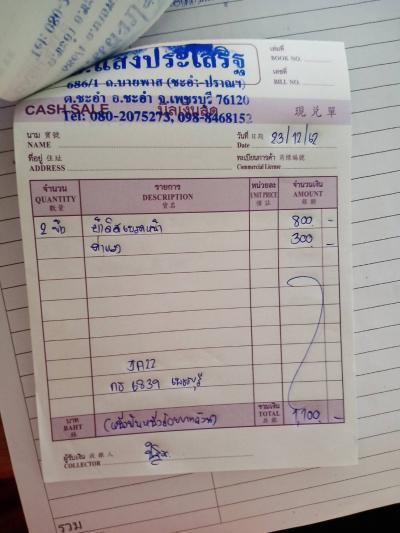 แสงประเสริฐ
686/1 ถ.บายพาส (ชะอำ-ปราณฯ)
ต.ชะอำ อ.ชะอำ จ.เพชรบุรี 76120
Tel: 080-2075273, 098-8468152
เล่มที่
BOOK NO.
เลขที่
BILL NO.
CASH SALE บิลเงินสด 現兌單
นาม 寶號
NAME
วันที่ 日期
Date 23/12/62
ที่อยู่ 住址
ADDRESS
ทะเบียนการค้า 商標編號
Commercial License
จำนวน รายการ หน่วยละ จำนวนเงิน
QUANTITY DESCRIPTION UNIT PRICE AMOUNT
數量 貨名 價註 銀額
2 800 -
ค่าแรง 300 -
กธ 6839 เพชรบุรี
บาท รวมเงิน
BAHT (หนึ่งพันหนึ่งร้อยบาทถ้วน) TOTAL 1,100 -
ผู้รับเงิน 收款人
COLLECTOR
รวม